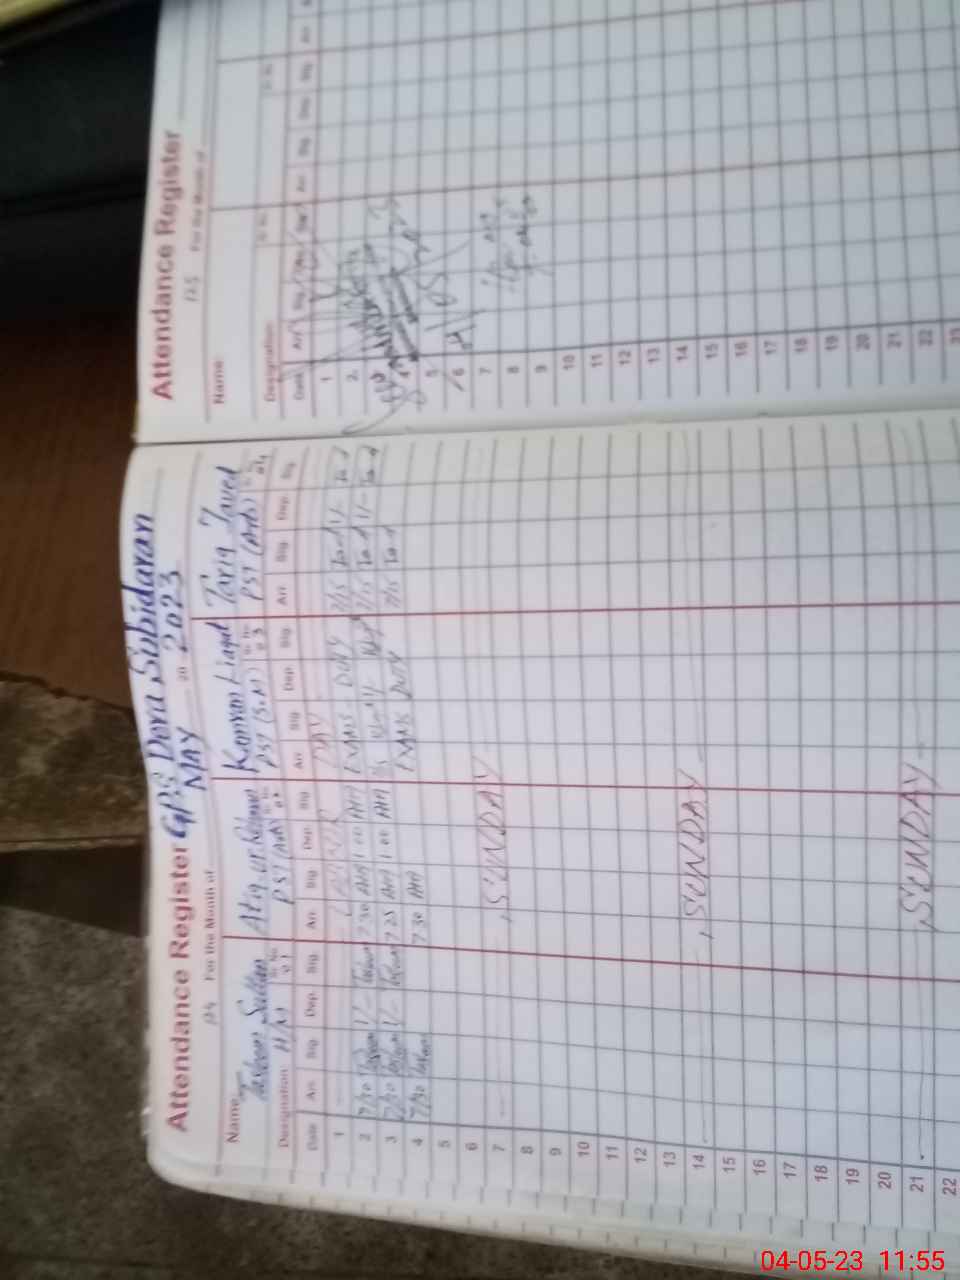 Attendance Register GPS Dera Subidaran
124 For the Month of MAY 20 2023
Name Tasleem Sultan Atiq ur Rehman Kamran Liaqat Tariq Javed
Designation H/M PST (Arts) PST (S.M) PST (Arts)
Date Arr Sig Dep Sig Arr Sig Dep Sig Arr Sig Dep Sig Arr Sig Dep Sig
1 LABOUR DAY
2 7/30 1/- 7 30 AH 1 00 AH EXAMS - DUTY 7/15 Tad 1/- Tad
3 7/30 1/- 7 25 AH 1 00 AH 7/15 Tad 1/- Tad
4 7/30 7 30 AH EXAMS DUTY 7/15 Tad
5
6
7 SUNDAY
8
9
10
11
12
13
14 SUNDAY
15
16
17
18
19
20
21 SUNDAY
22
Attendance Register
125 For the Month of
Name
Designation
Date Arr Sig Dep Sig Arr Sig Dep Sig Arr
1
2
4
5
6
7
8
9
10
11
12
13
14
15
16
17
18
19
20
21
22
23
04-05-23 11:55